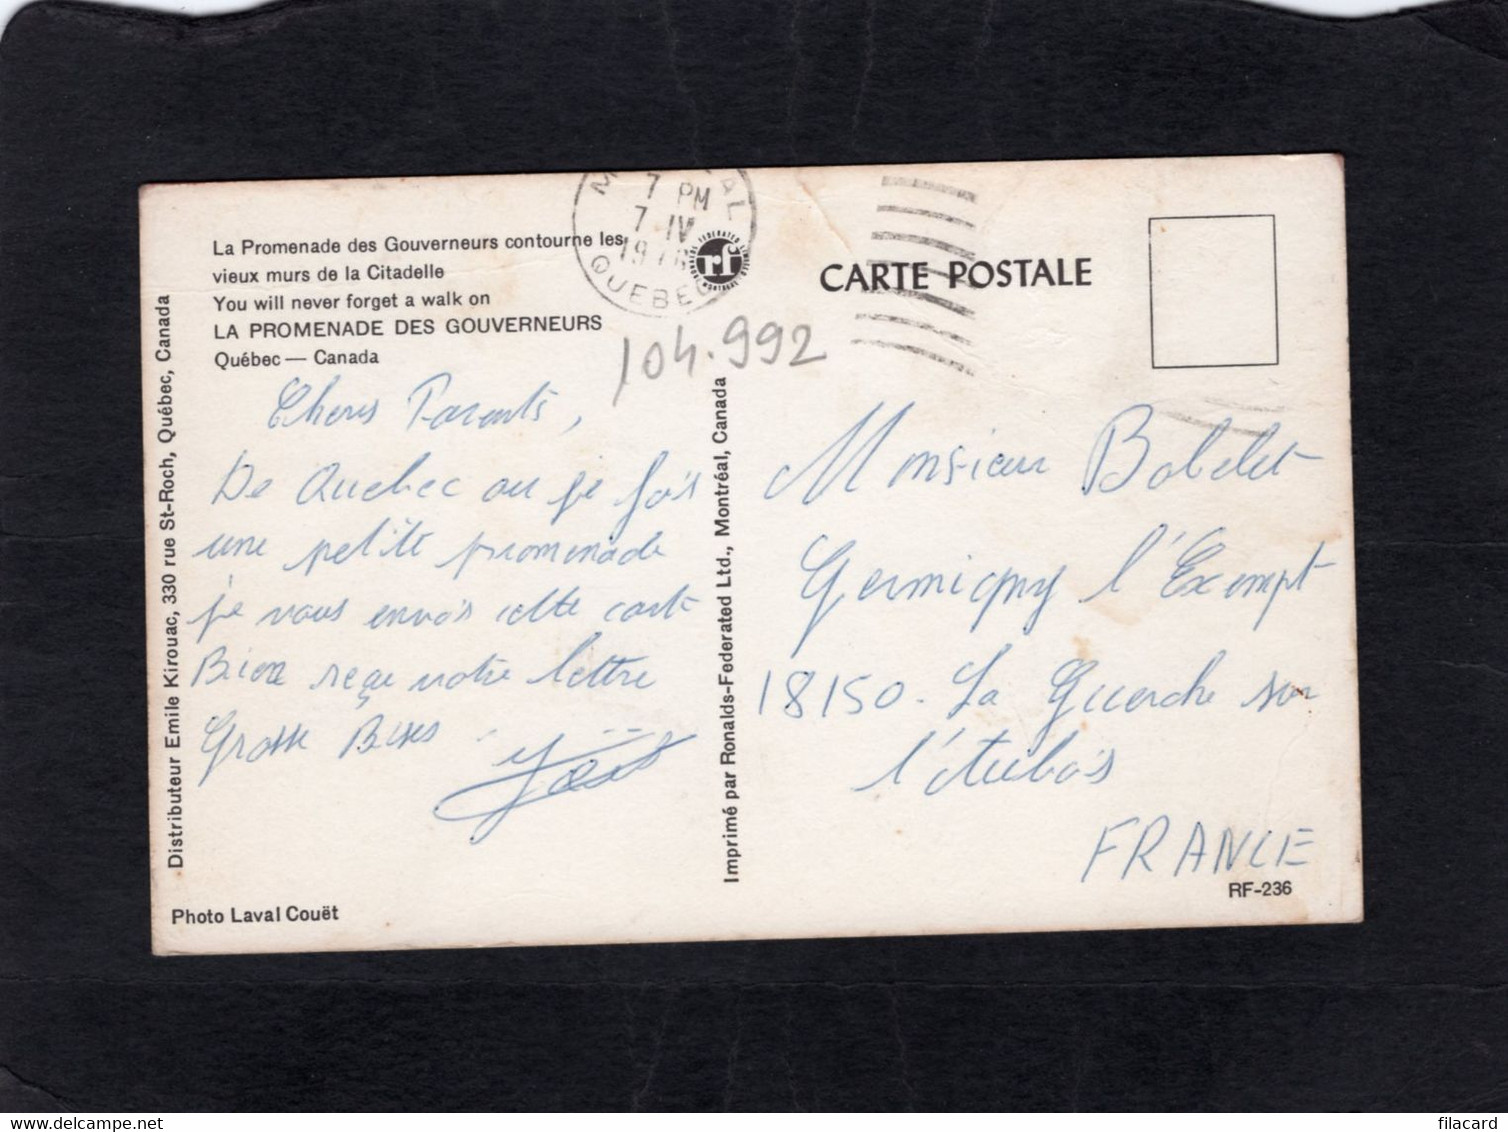 La Promenade des Gouverneurs contourne les
vieux murs de la Citadelle
You will never forget a walk on
LA PROMENADE DES GOUVERNEURS
Québec — Canada
7 PM
7 IV
QUEBEC
rf
104.992
CARTE POSTALE
Chers Parents,
De Quebec ou je fais
une petite promenade
je vous envois cette carte
Bien reçe votre lettre
Grosse Bises
Monsieur Bobelet
Germigny l'Exempt
18150. La Guerche sur
l'Aubois
FRANCE
RF-236
Distributeur Emile Kirouac, 330 rue St-Roch, Québec, Canada
Imprimé par Ronalds-Federated Ltd., Montréal, Canada
Photo Laval Couët
www.delcampe.net
filacard